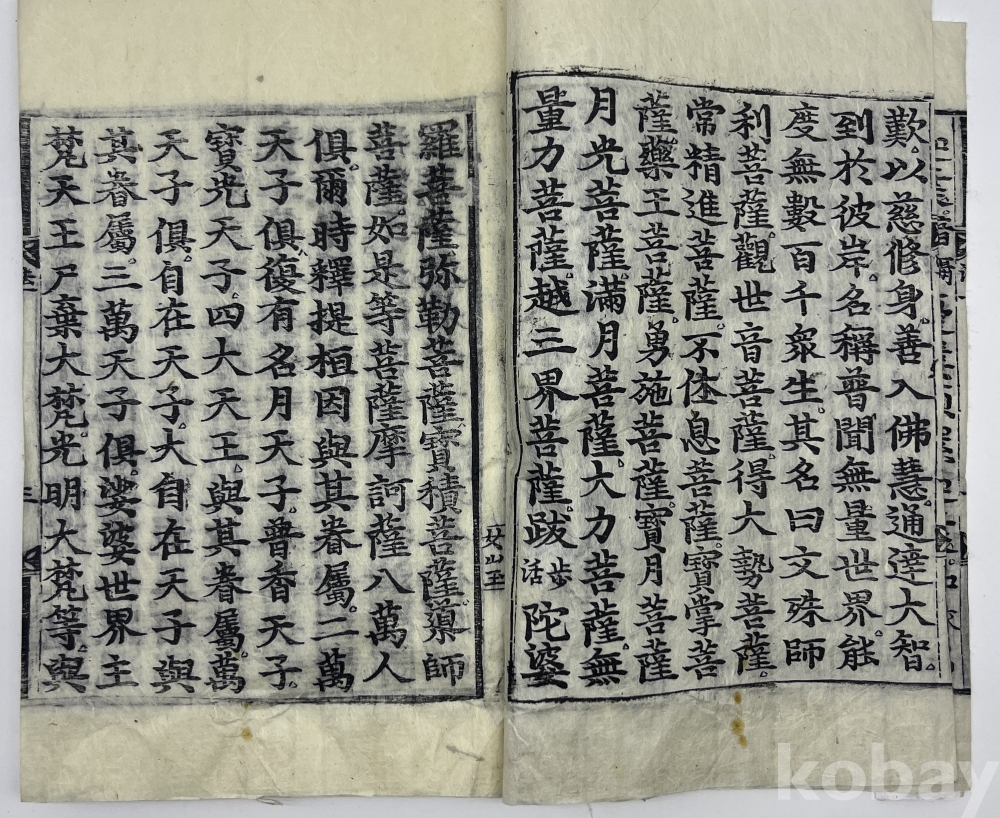 歎。以慈修身善入佛慧。通達大智。
到於彼岸。名稱普聞無量世界。能
度無數百千衆生。其名曰文殊師
利菩薩。觀世音菩薩。得大勢菩薩。
常精進菩薩。不休息菩薩。寶掌菩
薩。藥王菩薩。勇施菩薩。寶月菩薩
月光菩薩。滿月菩薩大力菩薩。無
量力菩薩。越三界菩薩。跋步活陀婆
羅菩薩弥勒菩薩寶積菩薩導師
菩薩如是等菩薩摩訶薩八萬人
俱。爾時釋提桓因與其眷屬。二萬
天子俱。復有名月天子。普香天子。
寶光天子。四大天王。與其眷屬。萬
天子俱。自在天子。大自在天子與
其眷屬。三萬天子俱。娑婆世界主
梵天王尸棄大梵。光明大梵等。與
三
kobay